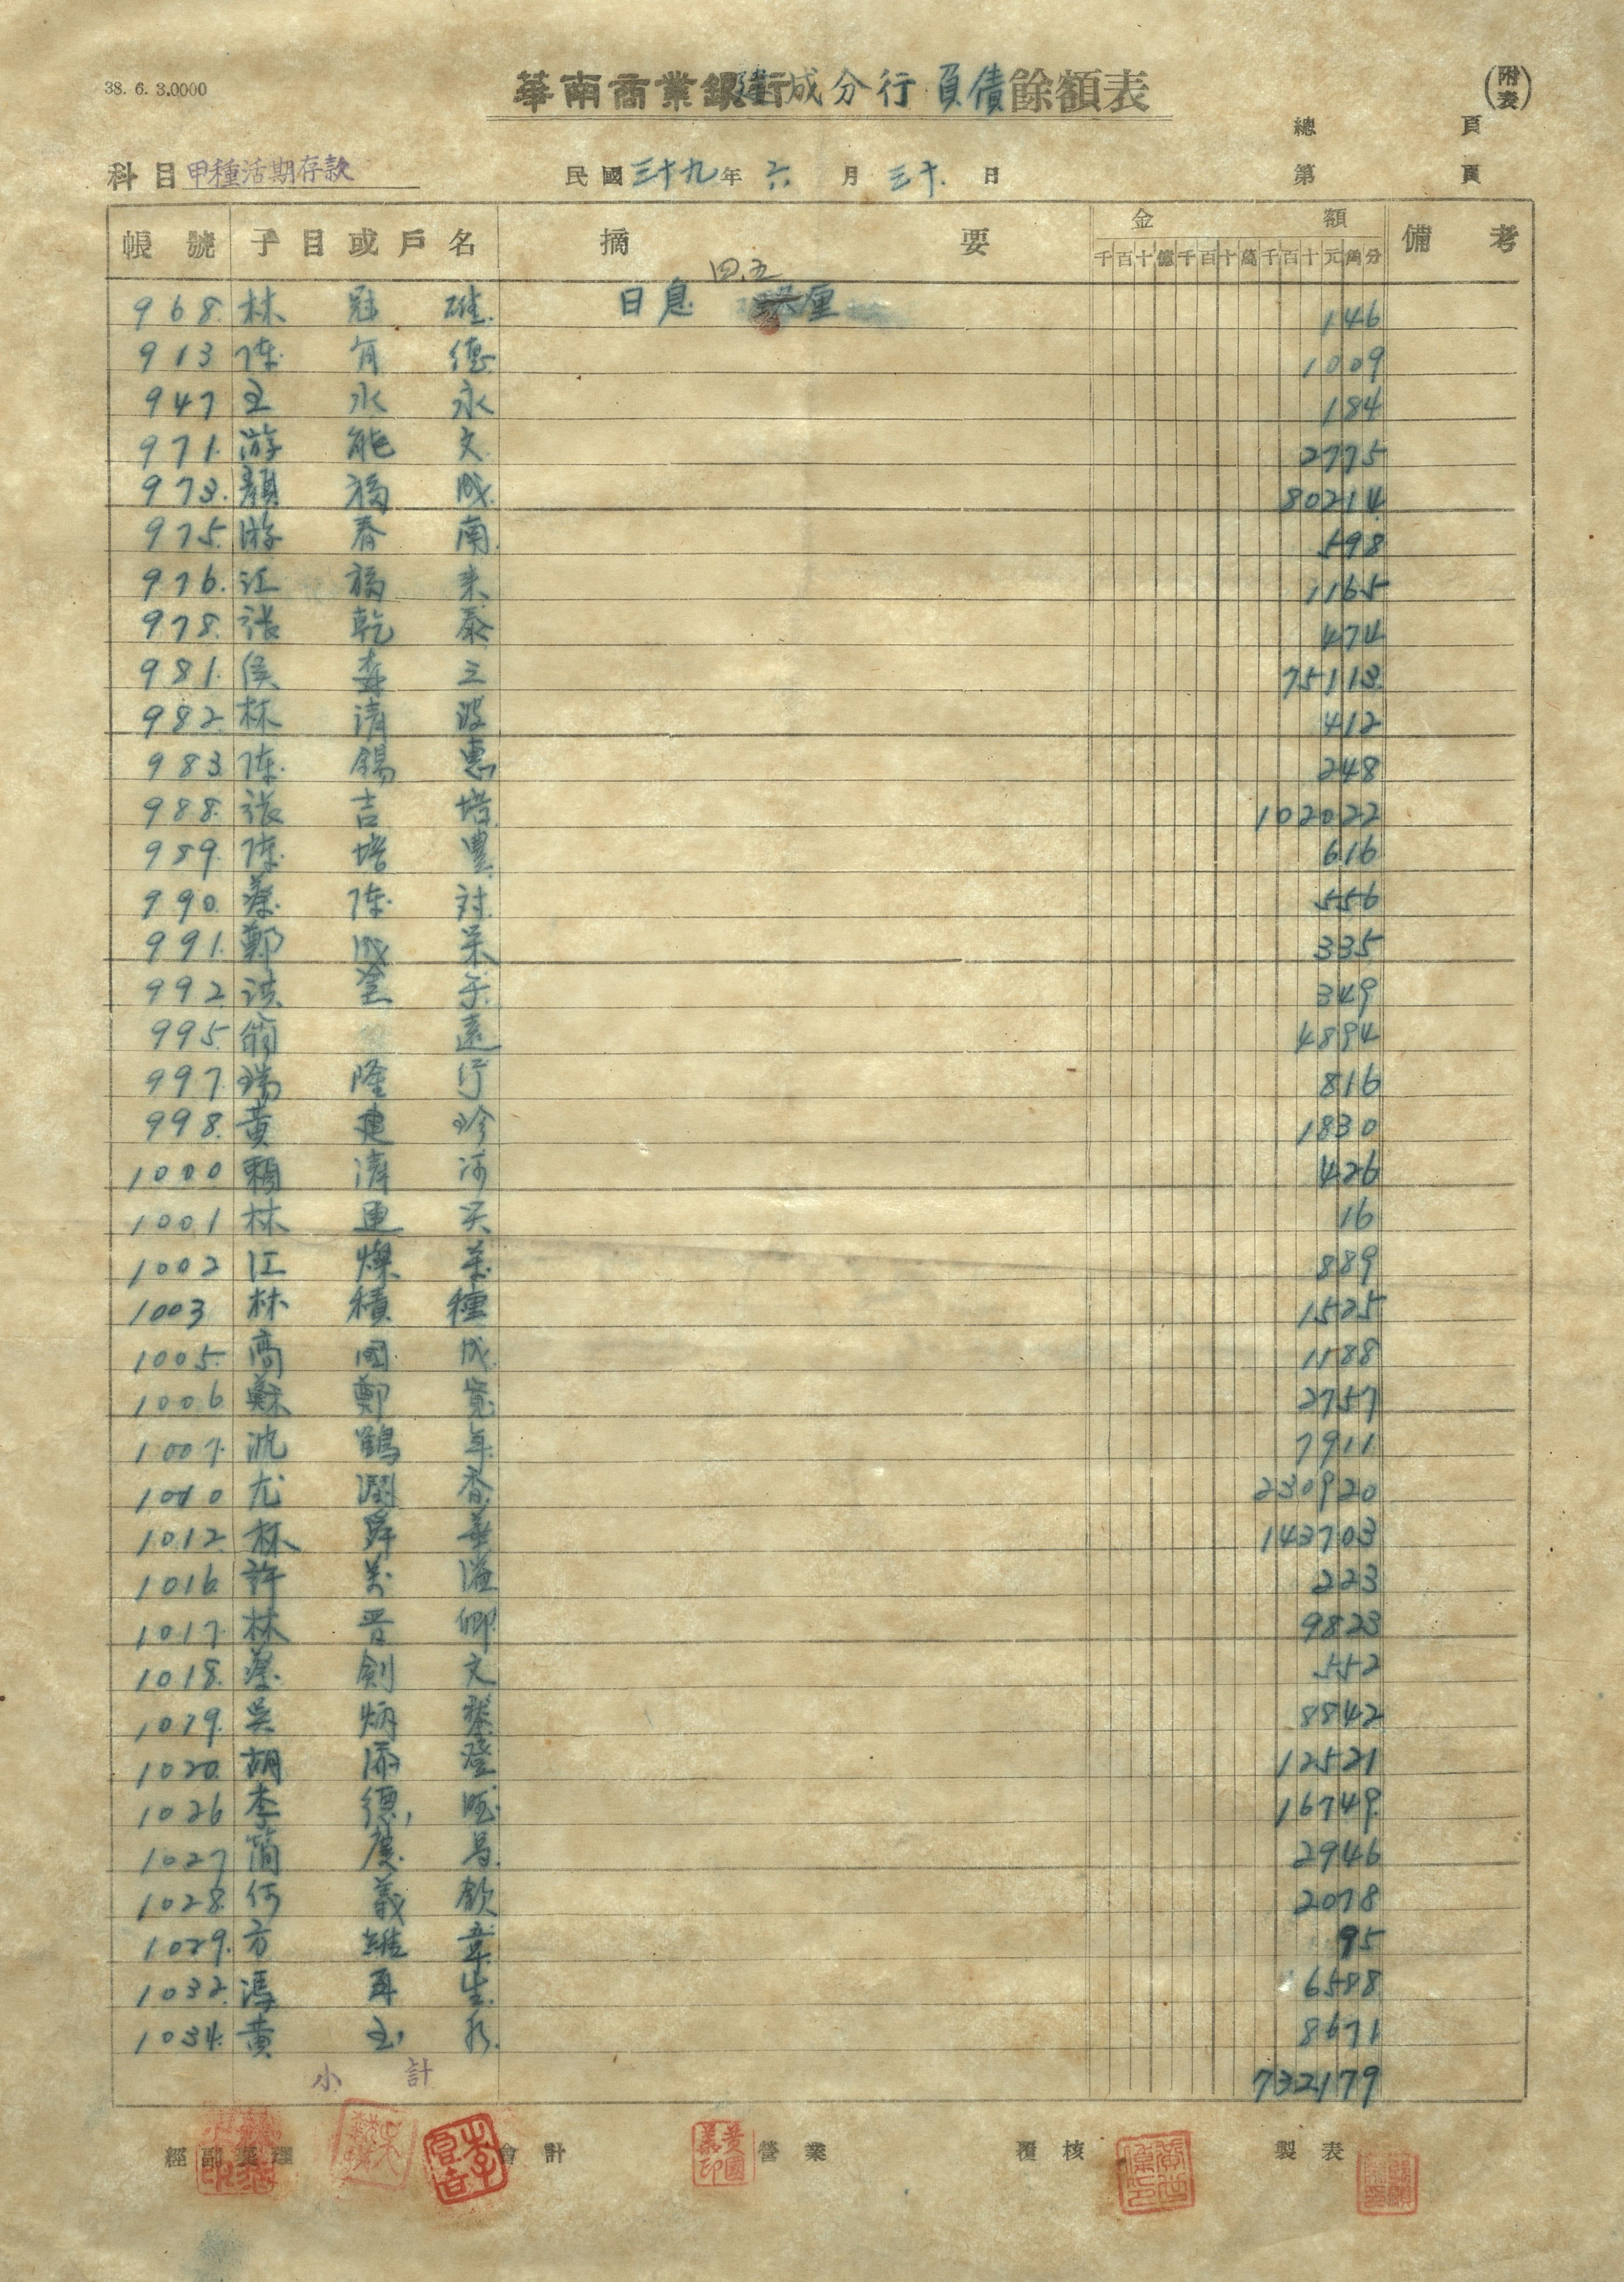 38. 6. 3.0000
華南商業銀行建成分行負債餘額表
(附表)
總 頁
科目 甲種活期存款 民國三十九年六月三十日 第 頁
帳號 子目或戶名 摘要 金額 備考
千百十億千百十萬千百十元角分
四.五
968. 林冠 日息 厘 146
913 陳有德 1009
947 王水永 184
971. 游能文 2775
973. 顏福成 80214
975. 游春南 598
976. 江福来 1165
978. 張乾泰 474
981. 侯森三 75113
982. 林清波 412
983. 陳錫惠 248
988. 張吉培 102022
989. 陳培豊 616
990. 蔡陳討 556
991. 鄭成 335
992. 洪 349
995. 簡遠 4894
997. 瑞隆行 816
998. 黃建珍 1830
1000 賴清河 426
1001 林連 16
1002 江燦 889
1003 林積種 1525
1005. 高國成 1188
1006 蘇鄭寬 2757
1007. 沈鶴年 7911
1010 尤潤香 230920
1012. 林舜華 143703
1016. 許萬溢 223
1017. 林晋卿 9823
1018. 蔡劍文 552
1019. 吳炳 8842
1020. 胡添澄 12521
1026 李德旺 16749
1027 簡慶昌 2946
1028. 何義欽 2078
1029. 方維章 95
1032. 馮再生 6588
1034. 黃玉 8671
小計 732179
經副襄理 會計 營業 覆核 製表